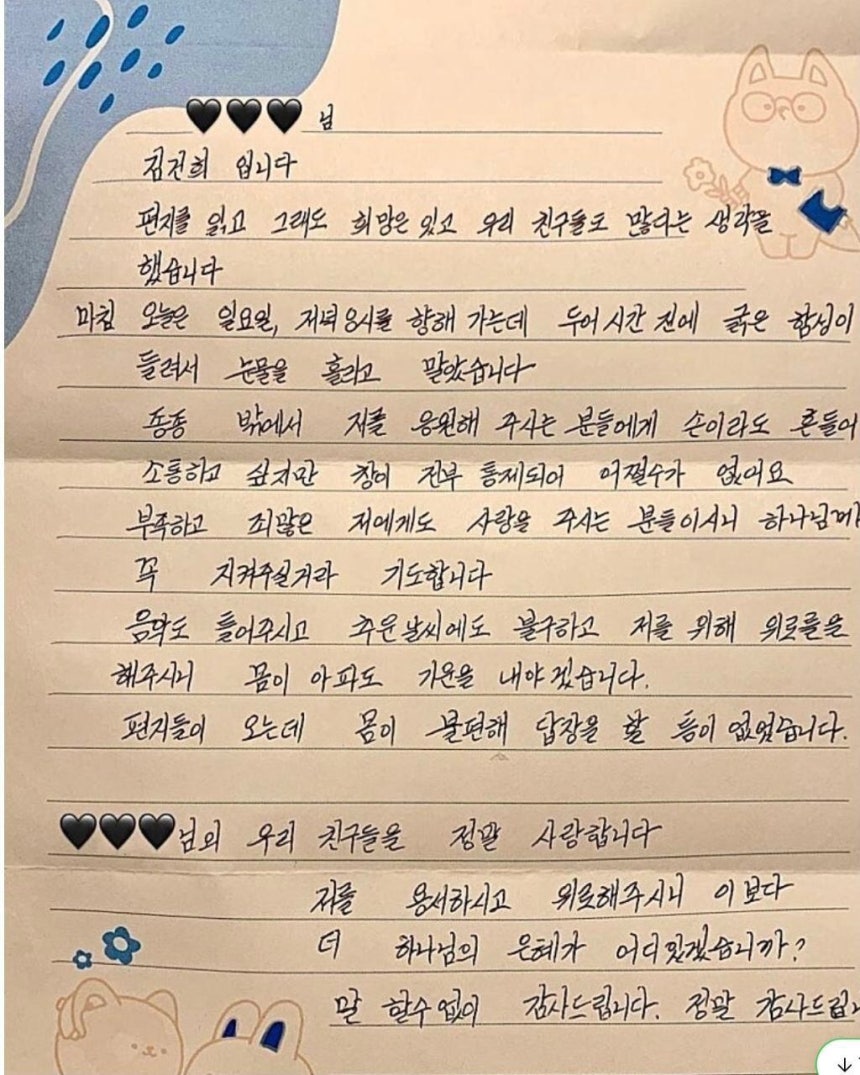 🖤🖤🖤 님
김건희 입니다
편지를 읽고 그래도 희망은 있고 우리 친구들도 많다는 생각을
했습니다
마침 오늘은 일요일, 저녁 8시를 향해 가는데 두어 시간 전에 굵은 함성이
들려서 눈물을 흘리고 말았습니다
종종 밖에서 저를 응원해 주시는 분들에게 손이라도 흔들어
소통하고 싶지만 창이 전부 통제되어 어쩔수가 없어요
부족하고 죄많은 저에게도 사랑을 주시는 분들이시니 하나님께
꼭 지켜주실거라 기도합니다
음악도 틀어주시고 추운날씨에도 불구하고 저를 위해 위로를을
해주시니 몸이 아파도 기운을 내야겠습니다.
편지들이 오는데 몸이 불편해 답장을 할 틈이 없었습니다.
🖤🖤🖤님의 우리 친구들을 정말 사랑합니다
저를 용서하시고 위로해주시니 이보다
더 하나님의 은혜가 어디있겠습니까?
말 할수없이 감사드립니다. 정말 감사드립니